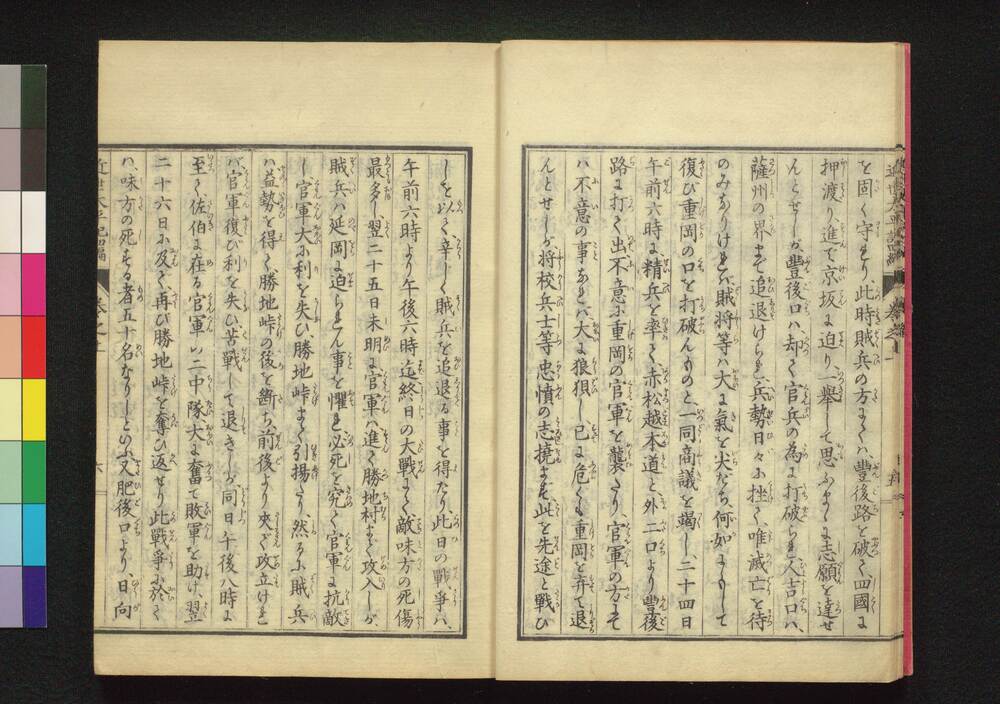 を固く守れり、此時賊兵の方にてハ、豊後路を破て四國に
押渡り、進で京坂に迫り、一擧して思ふまゝに志願を達せ
んとせしが、豊後口ハ、却て官兵の為に打破られ、人吉口ハ、
薩州の界まで追退けられ、兵勢日々に挫く、唯滅亡を待
のみなりけれバ、賊将等ハ大に氣を失だち、何如にもして
復び重岡の口を打破んものと、一同商議を竭し、二十四日
午前六時に精兵を率て、赤松越本道と外二口より豊後
路に打て出、不意に重岡の官軍を襲たり、官軍の方にそ
ハ不意の事なれバ、大に狼狽し、已に危くも重岡を弃て退
んとせしが、将校兵士等忠憤の志撓まず、此を先途と戰ひ
しを以て、辛じて賊兵を追退る事を得たり、此日の戰爭ハ、
午前六時より午後六時迄、終日の大戰にて、敵味方の死傷
最多し、翌二十五日未明に官軍ハ進で勝地村まで攻入しが、
賊兵ハ延岡に迫られん事を懼れ、必死を究て官軍に抗敵
し、官軍大に利を失ひ、勝地峠まで引揚たり、然るに賊兵
ハ益勢を得て、勝地峠の後を断ち、前後より夾で攻立けれ
バ、官軍復び利を失ひ、苦戰して退きしが、同日午後八時に
至て、佐伯に在る官軍一二中隊、大に奮て敗軍を助け、翌
二十六日に及で、再び勝地峠を奪ひ返せり、此戰爭に於て
ハ、味方の死する者五十名なりしといふ、又肥後口より、日向
近世太平記四編
巻之一
六